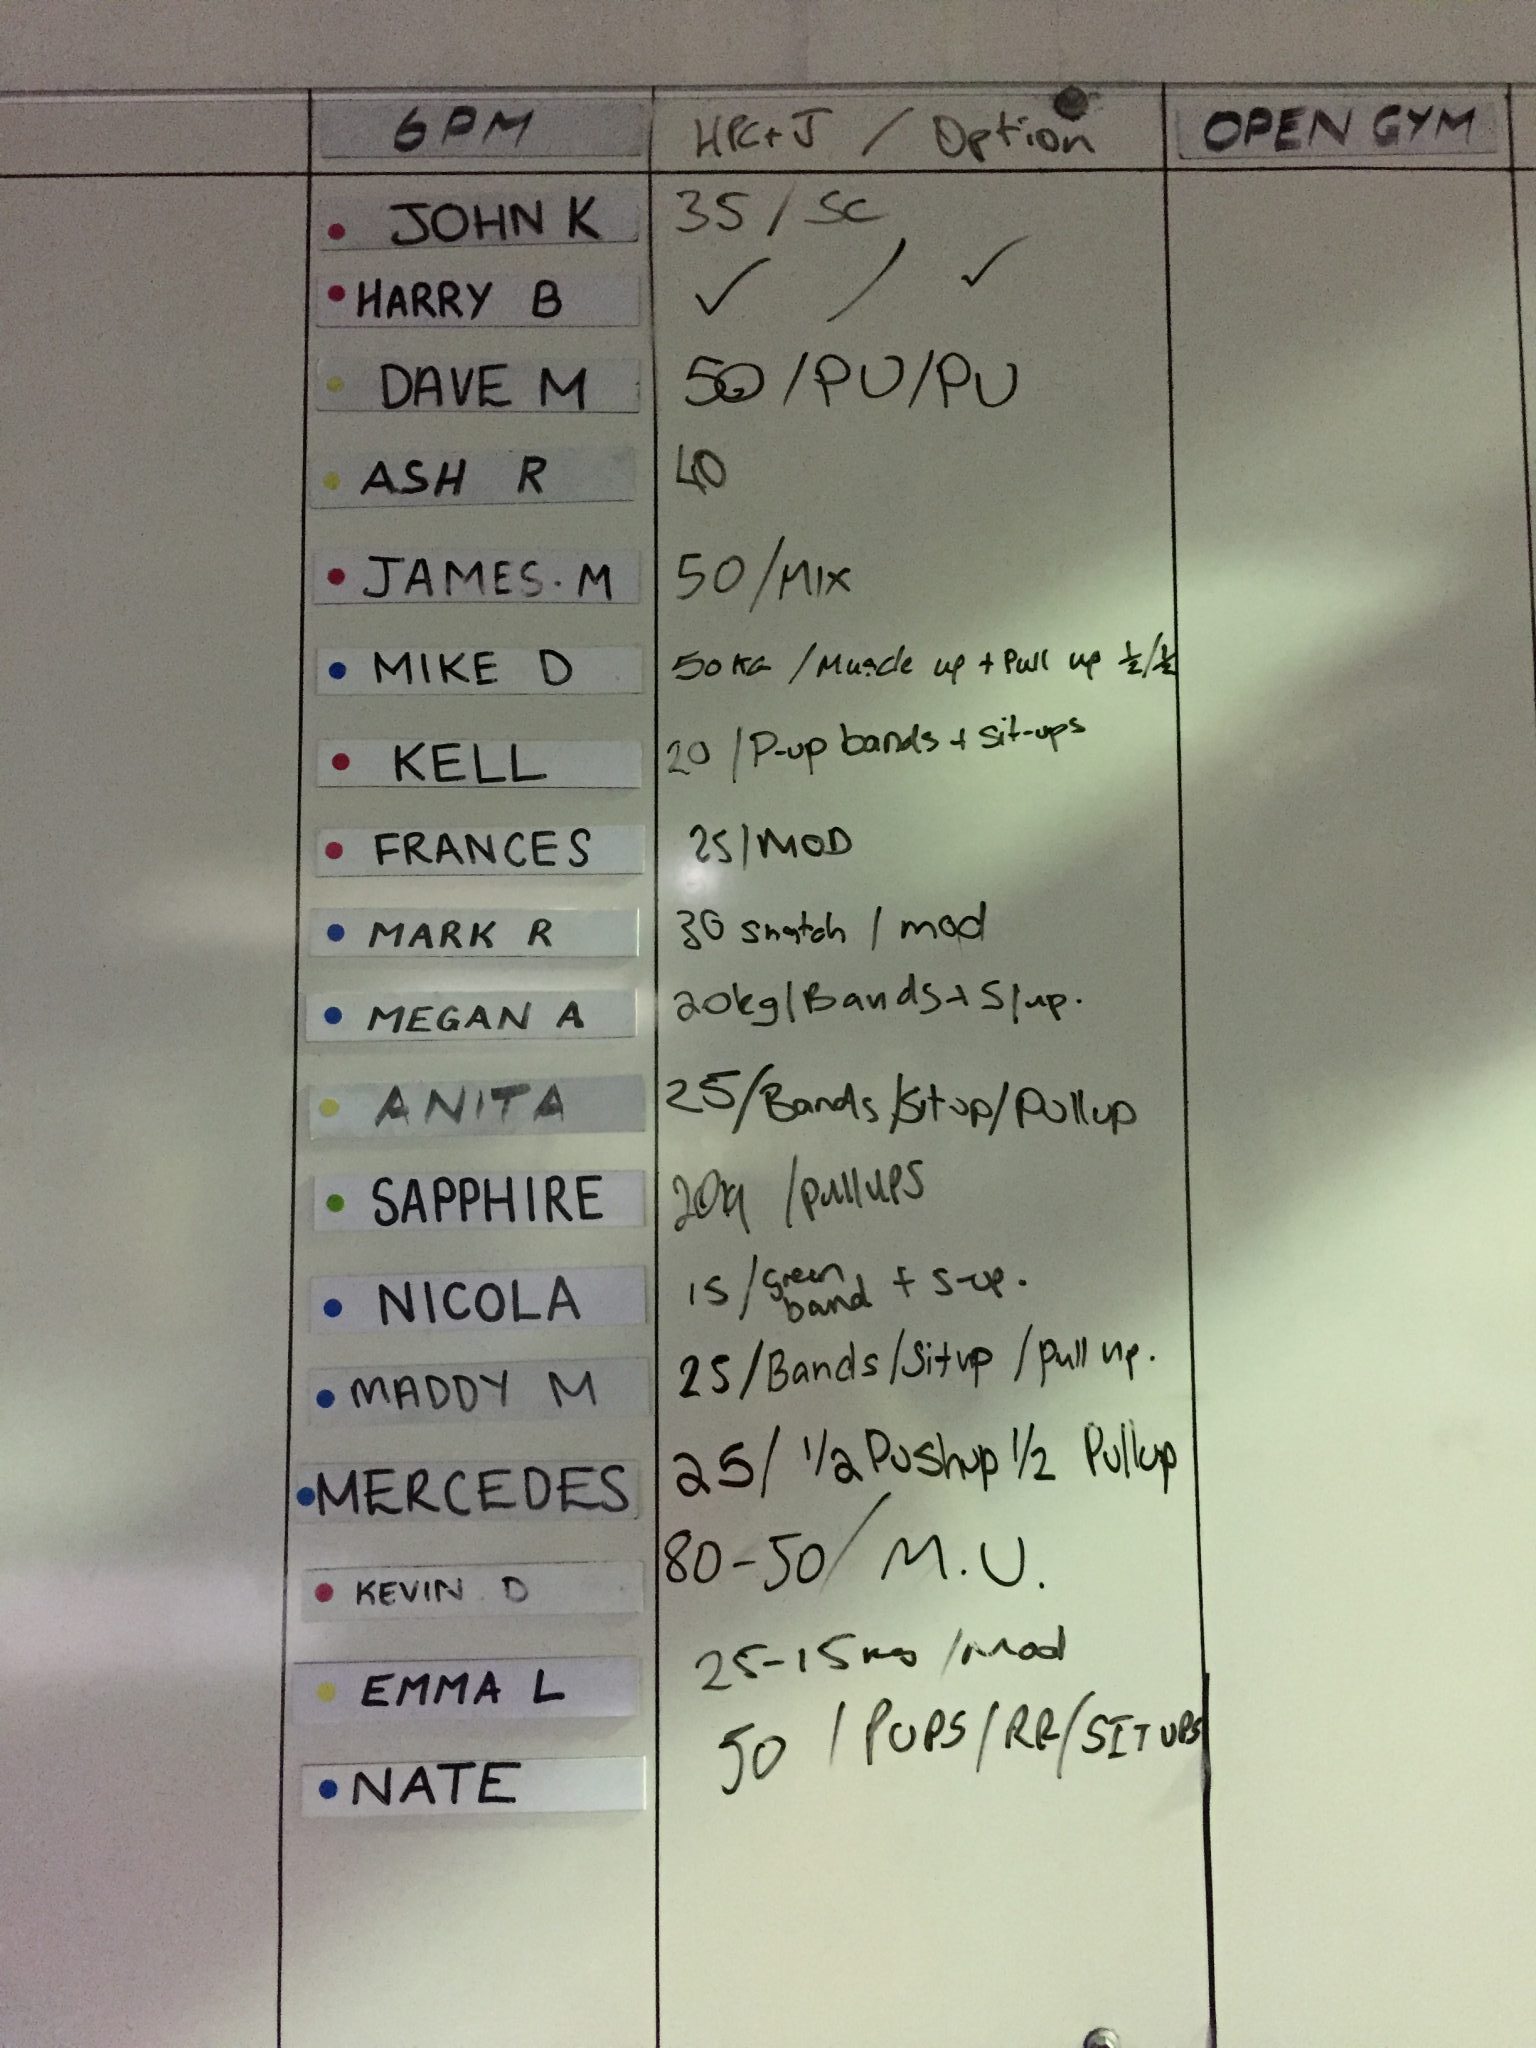 6PM HPC+J / Option OPEN GYM
JOHN K 35 / SC
HARRY B ✓ / ✓
DAVE M 50 / PU / PU
ASH R 40
JAMES. M 50 / MIX
MIKE D 50 KG / Muscle up + Pull up ½/½
KELL 20 / P-up bands + sit-ups
FRANCES 25 / MOD
MARK R 30 snatch / mod
MEGAN A 20kg / Bands + S/up.
ANITA 25 / Bands / Sit up / Pull up
SAPPHIRE / pull UPS
NICOLA 15 / green band + S-up.
MADDY M 25 / Bands / Sit up / pull up.
MERCEDES 25 / 1/2 Pushup 1/2 Pullup
KEVIN D 80-50 / M.U.
EMMA L 25-15 kg / Mod
NATE 50 / PUPS / RR / SIT UPS